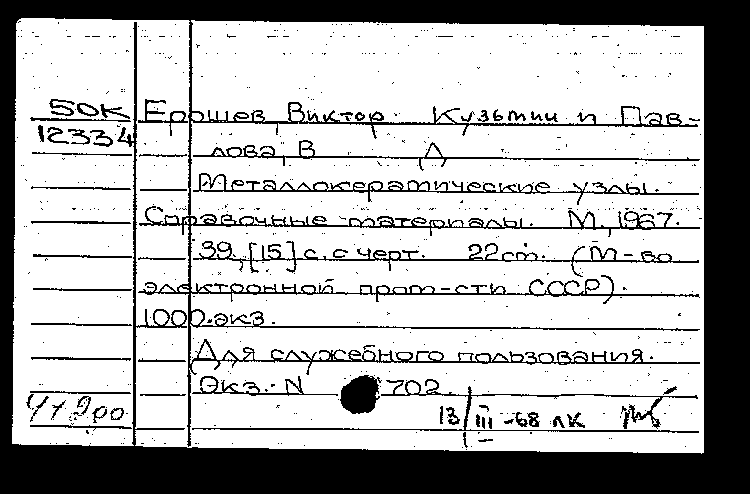 50К Ерошев, Виктор Кузьмич и Пав-
12334
лова, В Д
Металлокерамические узлы.
Справочные материалы. М., 1967.
39, [15] с. с черт. 22 cm. (М-во
электронной пром-сти СССР).
1000 экз.
Для служебного пользования.
Экз. N 702.
13/III-68 ЛК